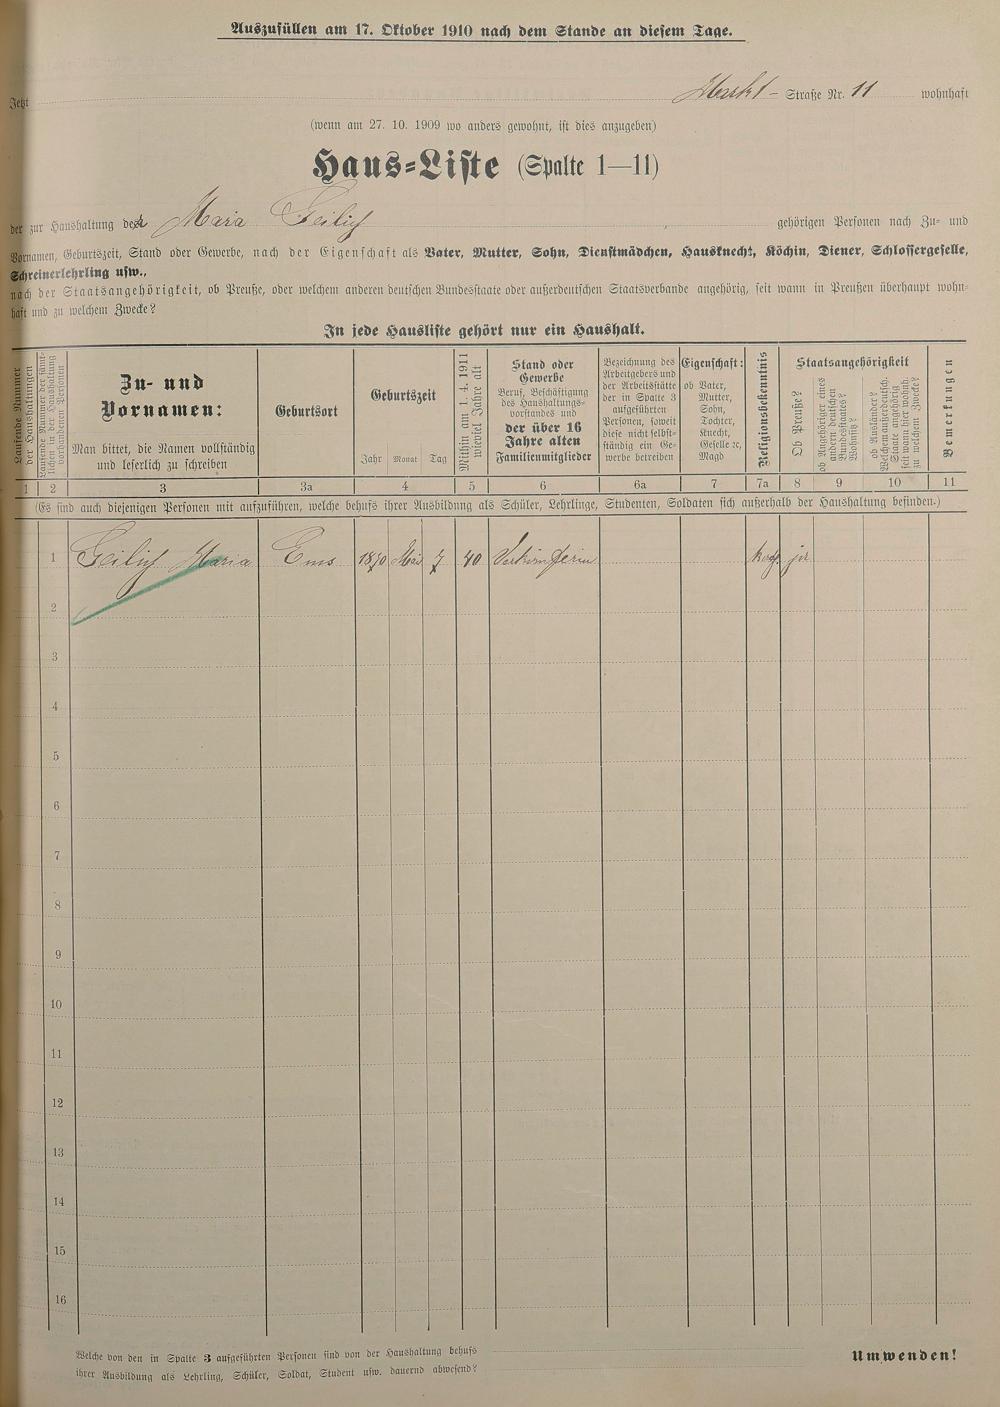 Auszufüllen am 17. Oktober 1910 nach dem Stande an diesem Tage.
Jetzt Markt- Straße Nr. 11 wohnhaft
(wenn am 27. 10. 1909 wo anders gewohnt, ist dies anzugeben)
Haus-Liste (Spalte 1—11)
der zur Haushaltung der Maria gehörigen Personen nach Zu- und
Vornamen, Geburtszeit, Stand oder Gewerbe, nach der Eigenschaft als Vater, Mutter, Sohn, Dienstmädchen, Hausknecht, Köchin, Diener, Schlossergeselle,
Schreinerlehrling usw.,
nach der Staatsangehörigkeit, ob Preuße, oder welchem anderen deutschen Bundesstaate oder außerdeutschen Staatsverbande angehörig, seit wann in Preußen überhaupt wohn-
haft und zu welchem Zwecke?
In jede Hausliste gehört nur ein Haushalt.
Laufende Nummer
der Haushaltungen
Laufende Nummer der sämt-
lichen in der Haushaltung
vorhandenen Personen
Zu- und
Vornamen:
Man bittet, die Namen vollständig
und leserlich zu schreiben
Geburtsort
Geburtszeit
Jahr Monat Tag
Mithin am 1. 4. 1911
wieviel Jahre alt
Stand oder
Gewerbe
Beruf, Beschäftigung
des Haushaltungs-
vorstandes und
der über 16
Jahre alten
Familienmitglieder
Bezeichnung des
Arbeitgebers und
der Arbeitsstätte
der in Spalte 3
aufgeführten
Personen, soweit
diese nicht selbst-
ständig ein Ge-
werbe betreiben
Eigenschaft:
ob Vater,
Mutter,
Sohn,
Tochter,
Knecht,
Geselle ꝛc,
Magd
Religionsbekenntnis
Staatsangehörigkeit
Ob Preuße?
ob Angehöriger eines
andern deutschen
Bundesstaates?
ob Ausländer?
Welchem außerdeutsch.
Staate angehörig,
seit wann hier wohnh.
zu welchem Zwecke?
Bemerkungen
1 2 3 3a 4 5 6 6a 7 7a 8 9 10 11
(Es sind auch diejenigen Personen mit aufzuführen, welche behufs ihrer Ausbildung als Schüler, Lehrlinge, Studenten, Soldaten sich außerhalb der Haushaltung befinden.)
1 Maria Ems 1870 7 40 Verkäuferin kath. ja
2
3
4
5
6
7
8
9
10
11
12
13
14
15
16
Welche von den in Spalte 3 aufgeführten Personen sind von der Haushaltung behufs
ihrer Ausbildung als Lehrling, Schüler, Soldat, Student usw. dauernd abwesend?
Umwenden!